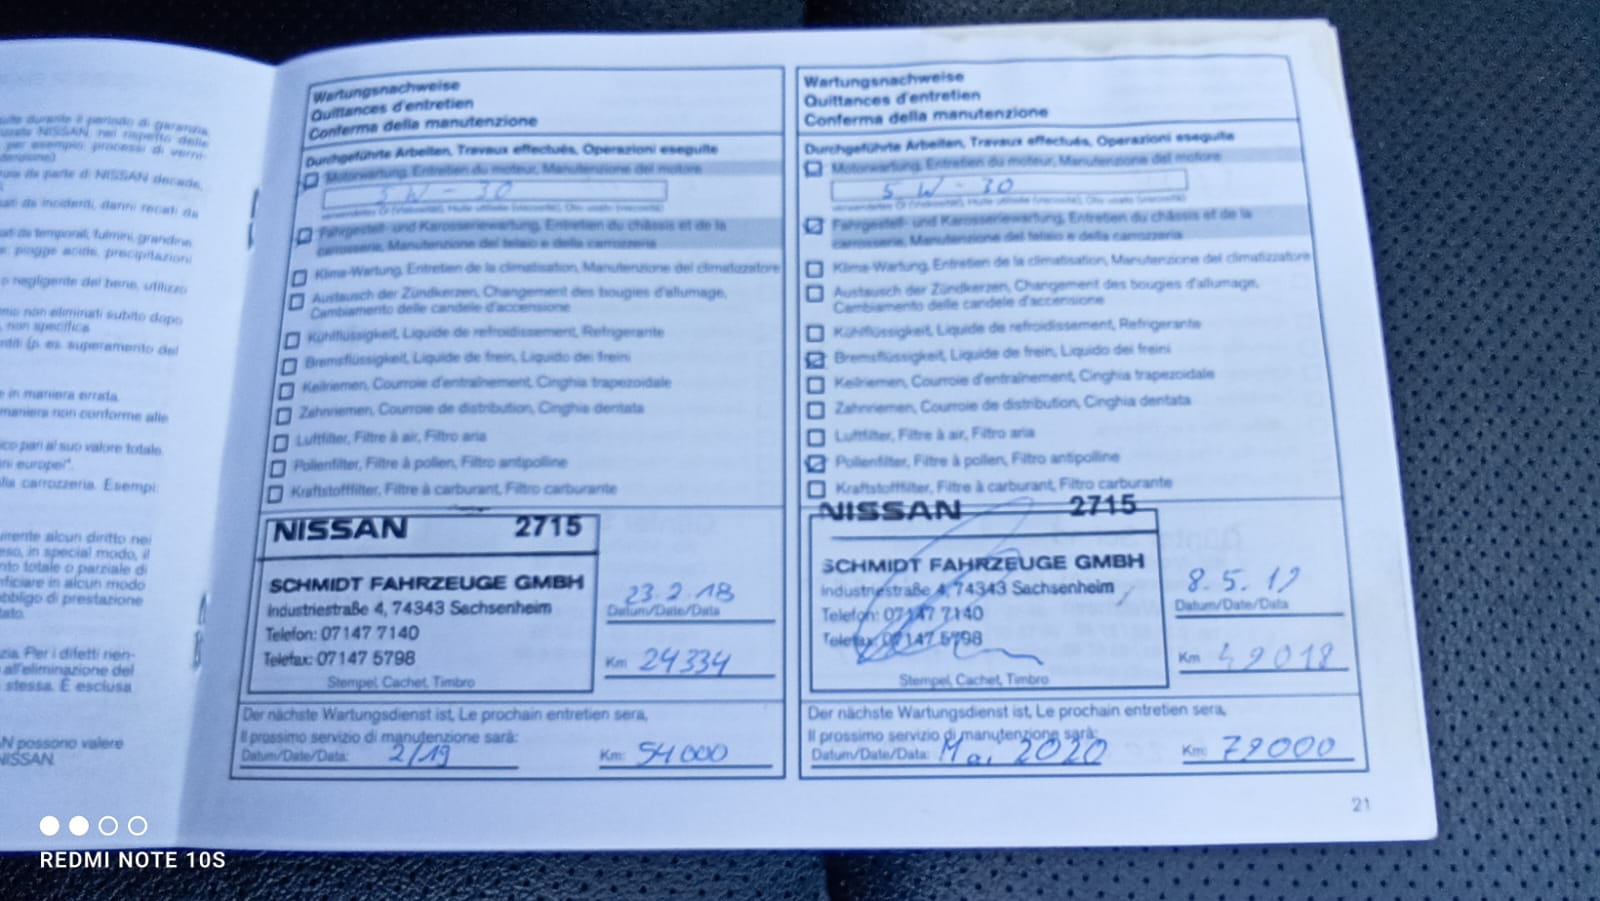 durante il periodo di garanzia,
NISSAN, nel rispetto delle
per esempio: processi di verni-
da parte di NISSAN decade,
da incidenti, danni recati da
da temporali, fulmini, grandine,
piogge acide, precipitazioni
o negligente del bene, utilizzo
non eliminati subito dopo
non specifica
(p. es. superamento del
in maniera errata.
maniera non conforme alle
pari al suo valore totale.
europei".
carrozzeria. Esempi:
alcun diritto nei
in special modo, il
totale o parziale di
in alcun modo
di prestazione
Per i difetti rien-
all'eliminazione del
stessa. È esclusa
possono valere
NISSAN.
Wartungsnachweise
Quittances d'entretien
Conferma della manutenzione
Durchgeführte Arbeiten, Travaux effectués, Operazioni eseguite
Motorwartung, Entretien du moteur, Manutenzione del motore
5 W - 30
verwendetes Öl (Viskosität), Huile utilisée (viscosité), Olio usato (viscosità)
Fahrgestell- und Karosseriewartung, Entretien du châssis et de la
carrosserie, Manutenzione del telaio e della carrozzeria
Klima-Wartung, Entretien de la climatisation, Manutenzione del climatizzatore
Austausch der Zündkerzen, Changement des bougies d'allumage,
Cambiamento delle candele d'accensione
Kühlflüssigkeit, Liquide de refroidissement, Refrigerante
Bremsflüssigkeit, Liquide de frein, Liquido dei freini
Keilriemen, Courroie d'entraînement, Cinghia trapezoidale
Zahnriemen, Courroie de distribution, Cinghia dentata
Luftfilter, Filtre à air, Filtro aria
Pollenfilter, Filtre à pollen, Filtro antipolline
Kraftstofffilter, Filtre à carburant, Filtro carburante
NISSAN 2715
SCHMIDT FAHRZEUGE GMBH
Industriestraße 4, 74343 Sachsenheim
Telefon: 07147 7140
Telefax: 07147 5798
Stempel, Cachet, Timbro
23.2.18
Datum/Date/Data
Km 24334
Der nächste Wartungsdienst ist, Le prochain entretien sera,
Il prossimo servizio di manutenzione sarà:
Datum/Date/Data: 2/19 Km: 54000
Wartungsnachweise
Quittances d'entretien
Conferma della manutenzione
Durchgeführte Arbeiten, Travaux effectués, Operazioni eseguite
Motorwartung, Entretien du moteur, Manutenzione del motore
5 W - 30
verwendetes Öl (Viskosität), Huile utilisée (viscosité), Olio usato (viscosità)
Fahrgestell- und Karosseriewartung, Entretien du châssis et de la
carrosserie, Manutenzione del telaio e della carrozzeria
Klima-Wartung, Entretien de la climatisation, Manutenzione del climatizzatore
Austausch der Zündkerzen, Changement des bougies d'allumage,
Cambiamento delle candele d'accensione
Kühlflüssigkeit, Liquide de refroidissement, Refrigerante
Bremsflüssigkeit, Liquide de frein, Liquido dei freini
Keilriemen, Courroie d'entraînement, Cinghia trapezoidale
Zahnriemen, Courroie de distribution, Cinghia dentata
Luftfilter, Filtre à air, Filtro aria
Pollenfilter, Filtre à pollen, Filtro antipolline
Kraftstofffilter, Filtre à carburant, Filtro carburante
NISSAN 2715
SCHMIDT FAHRZEUGE GMBH
Industriestraße 4, 74343 Sachsenheim
Telefon: 07147 7140
Telefax: 07147 5798
Stempel, Cachet, Timbro
8.5.19
Datum/Date/Data
Km 49018
Der nächste Wartungsdienst ist, Le prochain entretien sera,
Il prossimo servizio di manutenzione sarà:
Datum/Date/Data: Mai 2020 Km: 79000
21
REDMI NOTE 10S